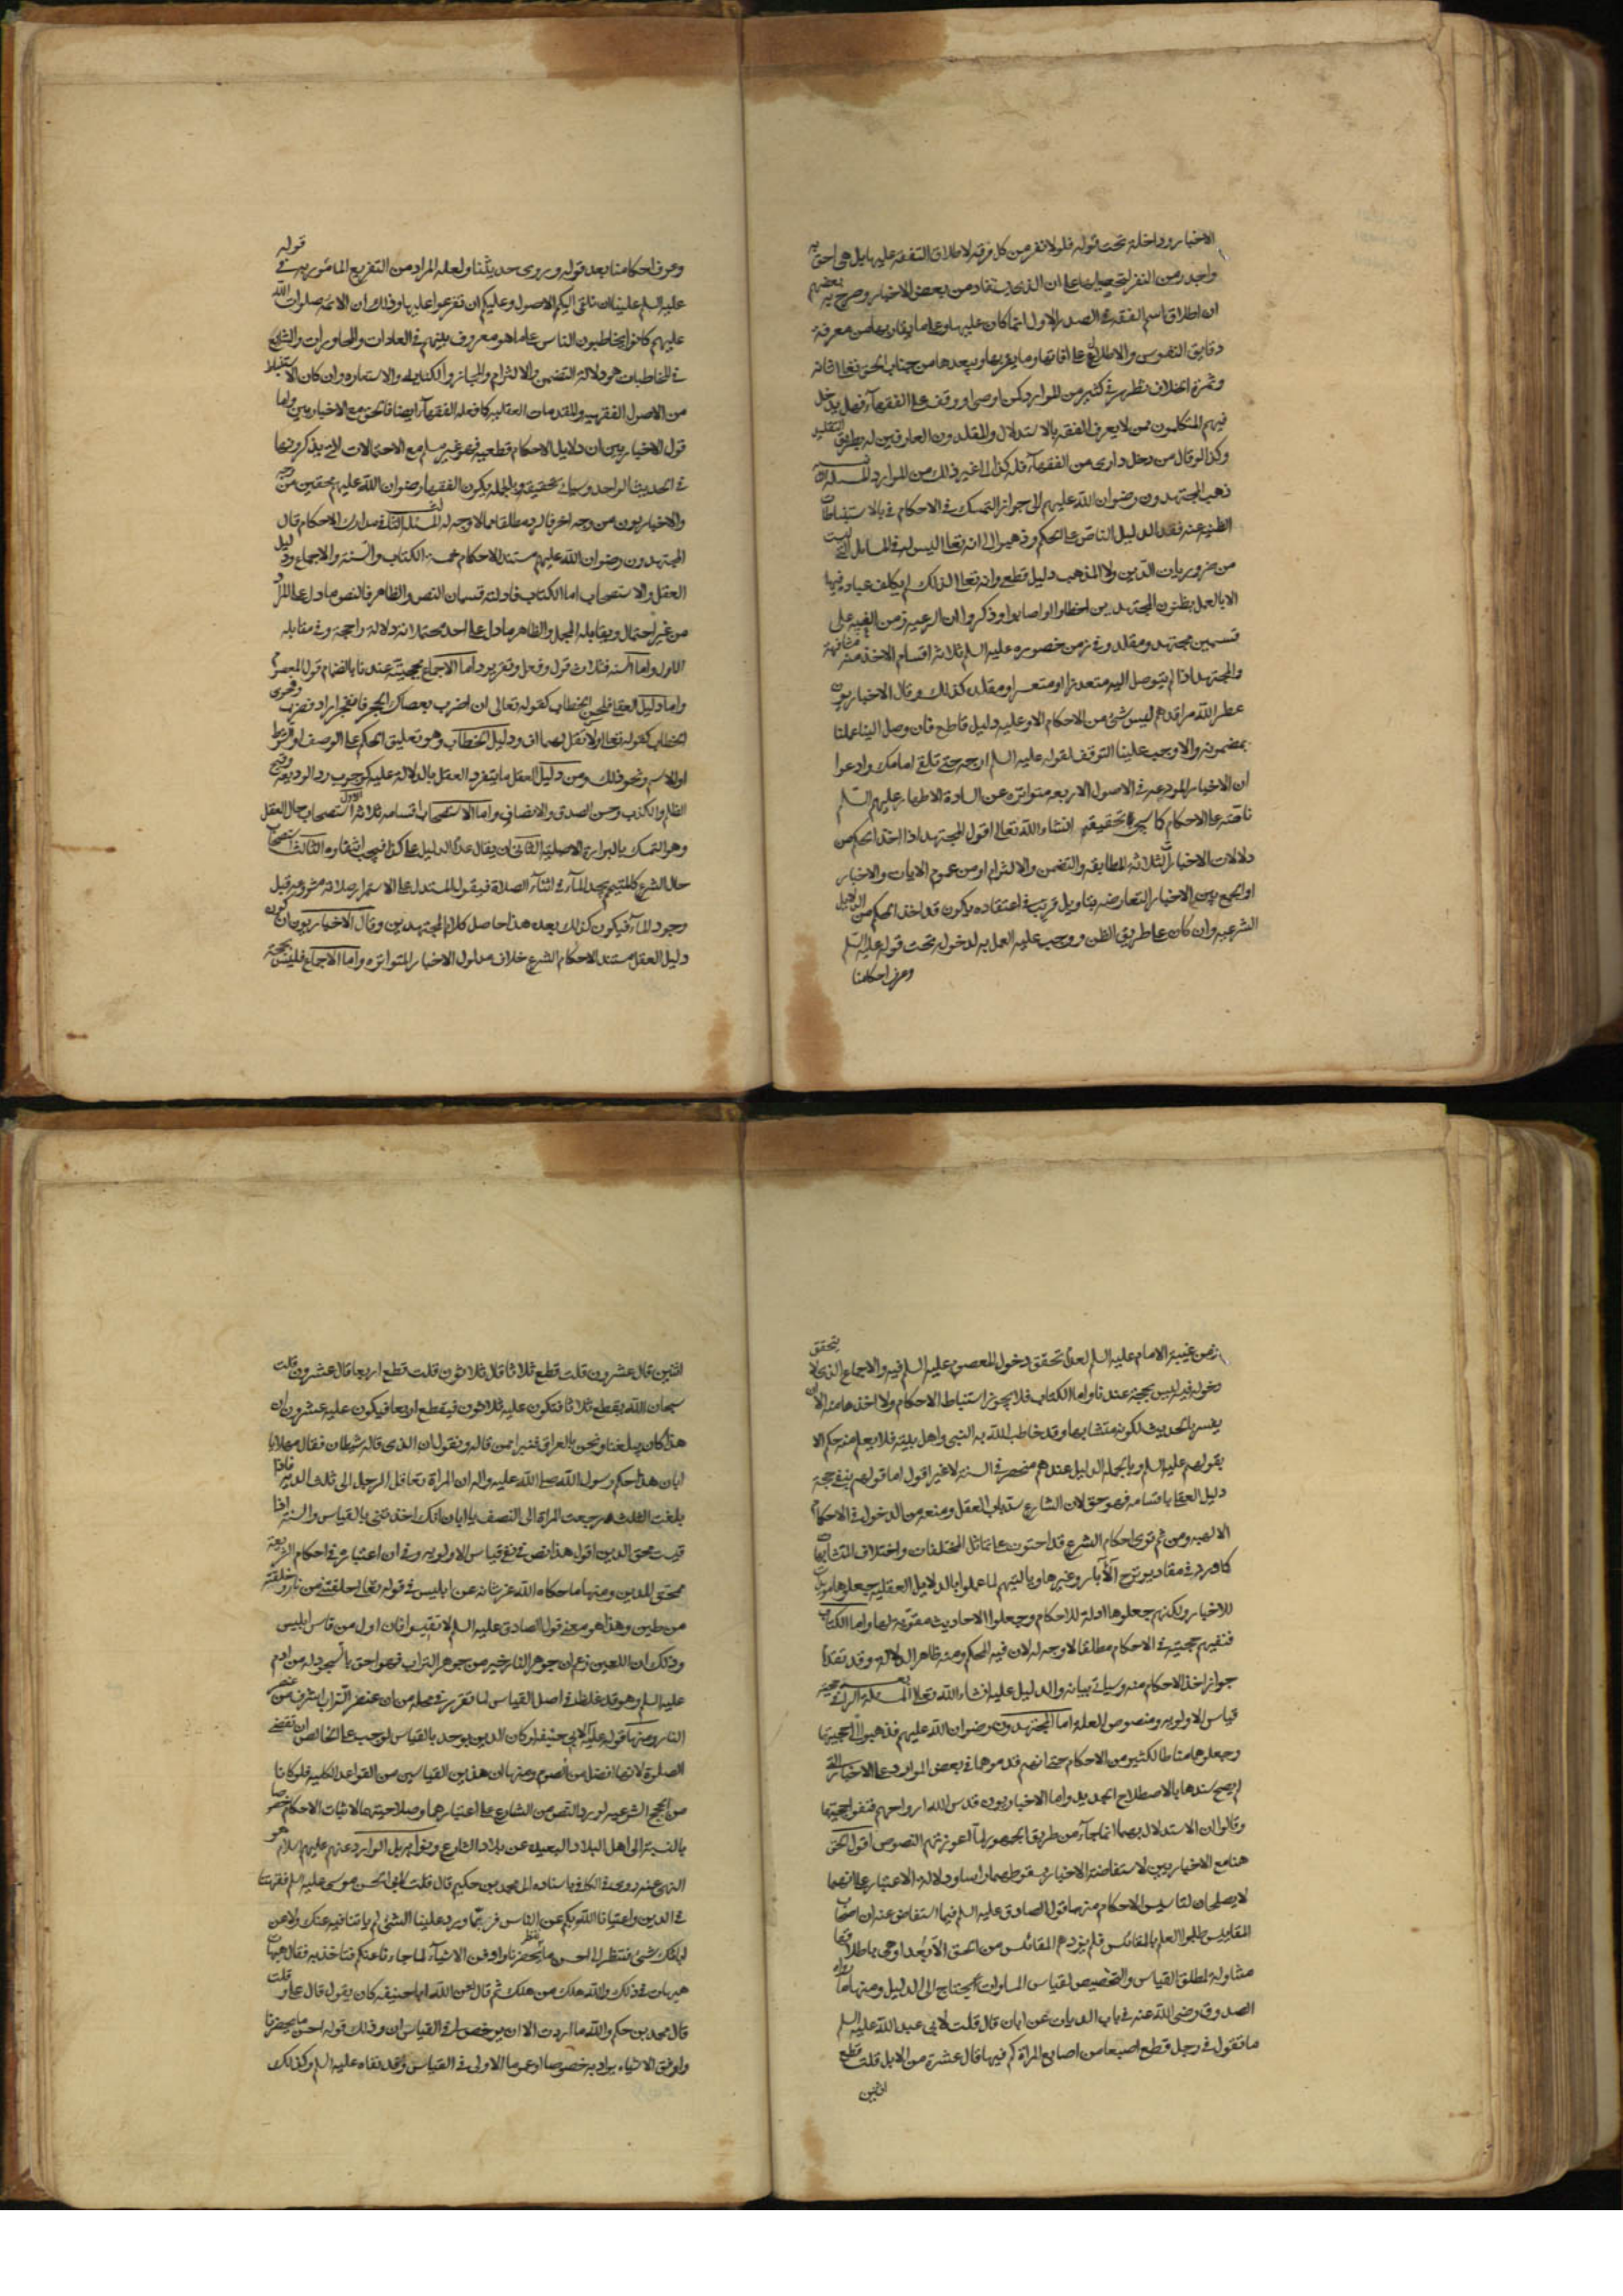 الاخبار وداخلة تحت قوله فلولا نفر من كل فرقة لاطلاق التفقه عليه بل هي احق به
واجدر من النفر لتحصيلها على ان الذي يستفاد من بعض الاخبار وصرح به بعضهم
ان اطلاق اسم الفقه في الصدر الاول انما كان عليها وعلى ما يقاربها من معرفة
دقايق النفوس والاطلاع على افاتها وما يقربها ويبعدها من جناب الحق تعالى شانه
وثمرة الخلاف تظهر في كثير من الموارد كمن اوصى او وقف على الفقهآء فهل يدخل
فيهم المتكلمون ممن لا يعرف الفقه بالاستدلال والمقلدون العارفين له بطريق التقليد
وكذا لو قال من دخل داري من الفقهآء فله كذا الى غير ذلك من الموارد المسئلة
ذهب المجتهدون رضوان الله عليهم الى جواز التمسك في الاحكام بالاستنباطات
الظنية عند فقد الدليل الناص على الحكم وذهبوا الى انه تعالى ليس له في المسايل التي ليست
من ضروريات الدين ولا المذهب دليل قطعي وانه تعالى لذلك لم يكلف عباده فيها
الا بالعمل بظنون المجتهدين اخطاوا او اصابوا وذكروا ان الرعية زمن الغيبة على
قسمين مجتهد ومقلد وفي زمن حضوره عليه السلم ثلاثة اقسام الاخذ منه مشافهة
والمجتهد اذا لم يتوصل اليه متعذرا او متعسرا ومقلد كذلك وقال الاخباريون
عطر الله مراقدهم ليس شئ من الاحكام الا وعليه دليل قاطع فان وصل الينا عملنا
بمضمونه والا وجب علينا التوقف لقوله عليه السلم ارجه حتى تلقى امامك وادعوا
ان الاخبار المودعه في الاصول الاربعه متواتره عن السادة الاطهار عليهم السلم
ناصة على الاحكام كما سيجئ تحقيقه انشاء الله تعالى اقول المجتهد اذا اخذ الحكم من
دلالات الاخبار الثلاثه المطابقه والتضمن والالتزام او من عموم الايات والاخبار
او الجمع بين الاخبار المتعارضه بتاويل قريب في اعتقاده يكون قد اخذ الحكم من الدلايل
الشرعيه وان كان على طريق الظن ووجب عليه العمل به لدخوله تحت قوله عليه السلم
وعرف احكامنا
وعرف احكامنا بعد قوله وروى حديثنا ولعله المراد من التفريع المامور به في قوله
عليه السلم علينا ان نلقي اليكم الاصول وعليكم ان تفرعوا عليها وذلك ان الائمة صلوات الله
عليهم كانوا يخاطبون الناس على ما هو معروف بينهم في العادات والمحاورات والشايع
في المخاطبات هو دلالة التضمن والالتزام والمجاز والكنايه والاستعاره وان كان الاستنباط
من الاصول الفقهيه والمقدمات العقليه كما فعله الفقهآء ايضا فالحق مع الاخباريين واما
قول الاخباريين ان دلايل الاحكام قطعيه فهو غير مسلم مع الاحتمالات التي يذكرونها
في الحديث الواحد وسياتي تحقيقه وبالجمله يكون الفقهاء رضوان الله عليهم محقين من وجه
والاخباريون من وجه اخر فالرد مطلقا مما لا وجه له المسئلة الثالثة في مدارك الاحكام قال
المجتهدون رضوان الله عليهم مستند الاحكام خمسة الكتاب والسنة والاجماع ودليل
العقل والاستصحاب اما الكتاب فادلته قسمان النص والظاهر فالنص ما دل على المراد
من غير احتمال ويقابله المجمل والظاهر ما دل على احد محتملاته دلالة راجحة وفي مقابله
الماول واما السنه فثلاث قول وفعل وتقرير واما الاجماع فحجيته عندنا بانضمام قول المعصوم
واما دليل العقل فلحن الخطاب كقوله تعالى ان اضرب بعصاك الحجر فانفجر اراد فضرب وفحوى
الخطاب كقوله تعالى ولا تقل لهما اف ودليل الخطاب وهو تعليق الحكم على الوصف او الشرط
او الاسم ونحو ذلك ومن دليل العقل ما يتفرد العقل بالدلالة عليه كوجوب رد الوديعة وقبح
الظلم والكذب وحسن الصدق والانصاف واما الاستصحاب فاقسامه ثلاثة الاول استصحاب حال العقل
وهو التمسك بالبراءة الاصلية الثاني ان يقال عدم الدليل على كذا فيجب انتفاوه الثالث استصحاب
حال الشرع كالمتيمم يجد المآء في اثنآء الصلاة فيقول المستدل على الاستمرار صلاته مشروعة قبل
وجود المآء فيكون كذلك بعده هذا حاصل كلام المجتهدين وقال الاخباريون ان كون
دليل العقل مستند الاحكام الشرع خلاف مدلول الاخبار المتواتره واما الاجماع فليس بحجة
زمن غيبة الامام عليه السلم لعدم تحقق دخول المعصوم عليه السلم فيه والاجماع الذي لا يتحقق
دخوله فيه ليس بحجة عندنا واما الكتاب فلا يجوز استنباط الاحكام ولا اخذها منه الا ان
يفسر بالحديث لكونه متشابها وقد خاطب الله به النبي واهل بيته فلا يعلم منه حكم الا
بقولهم عليهم السلم وبالجملة الدليل عندهم منحصر في السنة لا غير اقول اما قولهم بنفي حجية
دليل العقل باقسامه فهو حق لان الشارع سد باب العقل ومنعه من الدخول في الاحكام
الالهيه ومن ثم ترى احكام الشرع قد احتوت على تماثل المختلفات واختلاف المتشابهات
كما ورد في مقادير نزح الآبار وغيرها وياليتهم لما عملوا بالدلايل العقلية جعلوها مويدات
للاخبار ولكنهم جعلوها ادلة للاحكام وجعلوا الاحاديث مقوية لها واما الكتاب
فنفيهم حجيته في الاحكام مطلقا لا وجه له لان فيه المحكم ومنه ظاهر الدلاله وقد تقدم
جواز اخذ الاحكام منه وسياتي بيانه والدليل عليه انشاء الله تعالى المسئلة الرابعة في حجية
قياس الاولويه ومنصوص العلة اما المجتهدون رضوان الله عليهم فذهبوا الى حجيتها
وجعلوهما مناطا لكثير من الاحكام حتى انهم قدموهما في بعض الموارد على الاخبار التي
لم يصح سندها بالاصطلاح الجديد واما الاخباريون قدس الله ارواحهم فنفوا حجيتهما
وقالوا ان الاستدلال بهما انما جآء من طريق الجمهور لمآ لعوزتهم النصوص اقول الحق
هنا مع الاخباريين لاستفاضة الاخبار بسقوطهما راسا ودلالة الاعتبار على انهما
لا يصلحان لتاسيس الاحكام منها قول الصادق عليه السلم فيما استفاض عنه ان اصحاب
المقاييس طلبوا العلم بالمقائس فلم يزدهم المقائس من الحق الا بعدا وهي باطلاقها
متناولة لمطلق القياس والتخصيص لقياس المساوات يحتاج الى الدليل ومنها ما رواه
الصدوق رضي الله عنه في باب الديات عن ابان قال قلت لابي عبد الله عليه السلم
ما تقول في رجل قطع اصبعا من اصابع المراة كم فيها قال عشرة من الابل قلت قطع
اثنين
اثنين قال عشرون قلت قطع ثلاثا قال ثلاثون قلت قطع اربعا قال عشرون قلت
سبحان الله يقطع ثلاثا فتكون عليه ثلاثون فيقطع اربعا فيكون عليه عشرون ان
هذا كان يبلغنا ونحن بالعراق فنبرا ممن قاله ونقول ان الذي قاله شيطان فقال مهلا يا
ابان هذا حكم رسول الله صلى الله عليه واله ان المراة تعاقل الرجل الى ثلث الدية فاذا
بلغت الثلث رجعت المراة الى النصف يا ابان انك اخذتني بالقياس والسنة اذا
قيست محق الدين اقول هذا نص في نفي قياس الاولويه وفي ان اعتباره في احكام الشريعة
ممحق للدين ومنها ما حكاه الله عز شانه عن ابليس في قوله تعالى خلقتني من نار وخلقته
من طين وهذا هو معنى قول الصادق عليه السلم لا تقيسوا فان اول من قاس ابليس
وذلك ان اللعين زعم ان جوهر النار خير من جوهر التراب فهو احق بالسجود له من ادم
عليه السلم وهو قد غلط في اصل القياس لما تقرر في محله من ان عنصر التراب اشرف من عنصر
النار ومنها قوله عليه السلم لابي حنيفه لو كان الدين يوخذ بالقياس لوجب على الحائض ان تقضي
الصلوة لانها افضل من الصوم ومنها ان هذين القياسين من القواعد الكليه فلو كانا
من الحجج الشرعية لورد النص من الشارع على اعتبارهما وصلاحيتهما لاثبات الاحكام خصوصا
بالنسبة الى اهل البلاد البعيدة عن بلاد الشارع ونوابه بل الوارد عنهم عليهم السلام هو
النهي عنه روى في الكافي باسناده الى محمد بن حكيم قال قلت لابي الحسن موسى عليه السلم فقهنا
في الدين واغنانا الله بكم عن الناس فربما ورد علينا الشئ لم ياتنا فيه عنك ولا عن
ابائك شئ فننظر الى احسن ما يحضرنا واوفق الاشيآء لما جاءنا عنكم فناخذ به فقال هيهات
هيهات في ذلك والله هلك من هلك ثم قال لعن الله ابا حنيفه كان يقول قال علي وقلت
قال محمد بن حكم والله ما اردت الا ان يرخص لي في القياس ان وذلك قوله احسن ما يحضرنا
واوفق الاشياء يراد به خصوصا او عموما الاولى في القياس وقد نفاه عليه السلم وكذلك